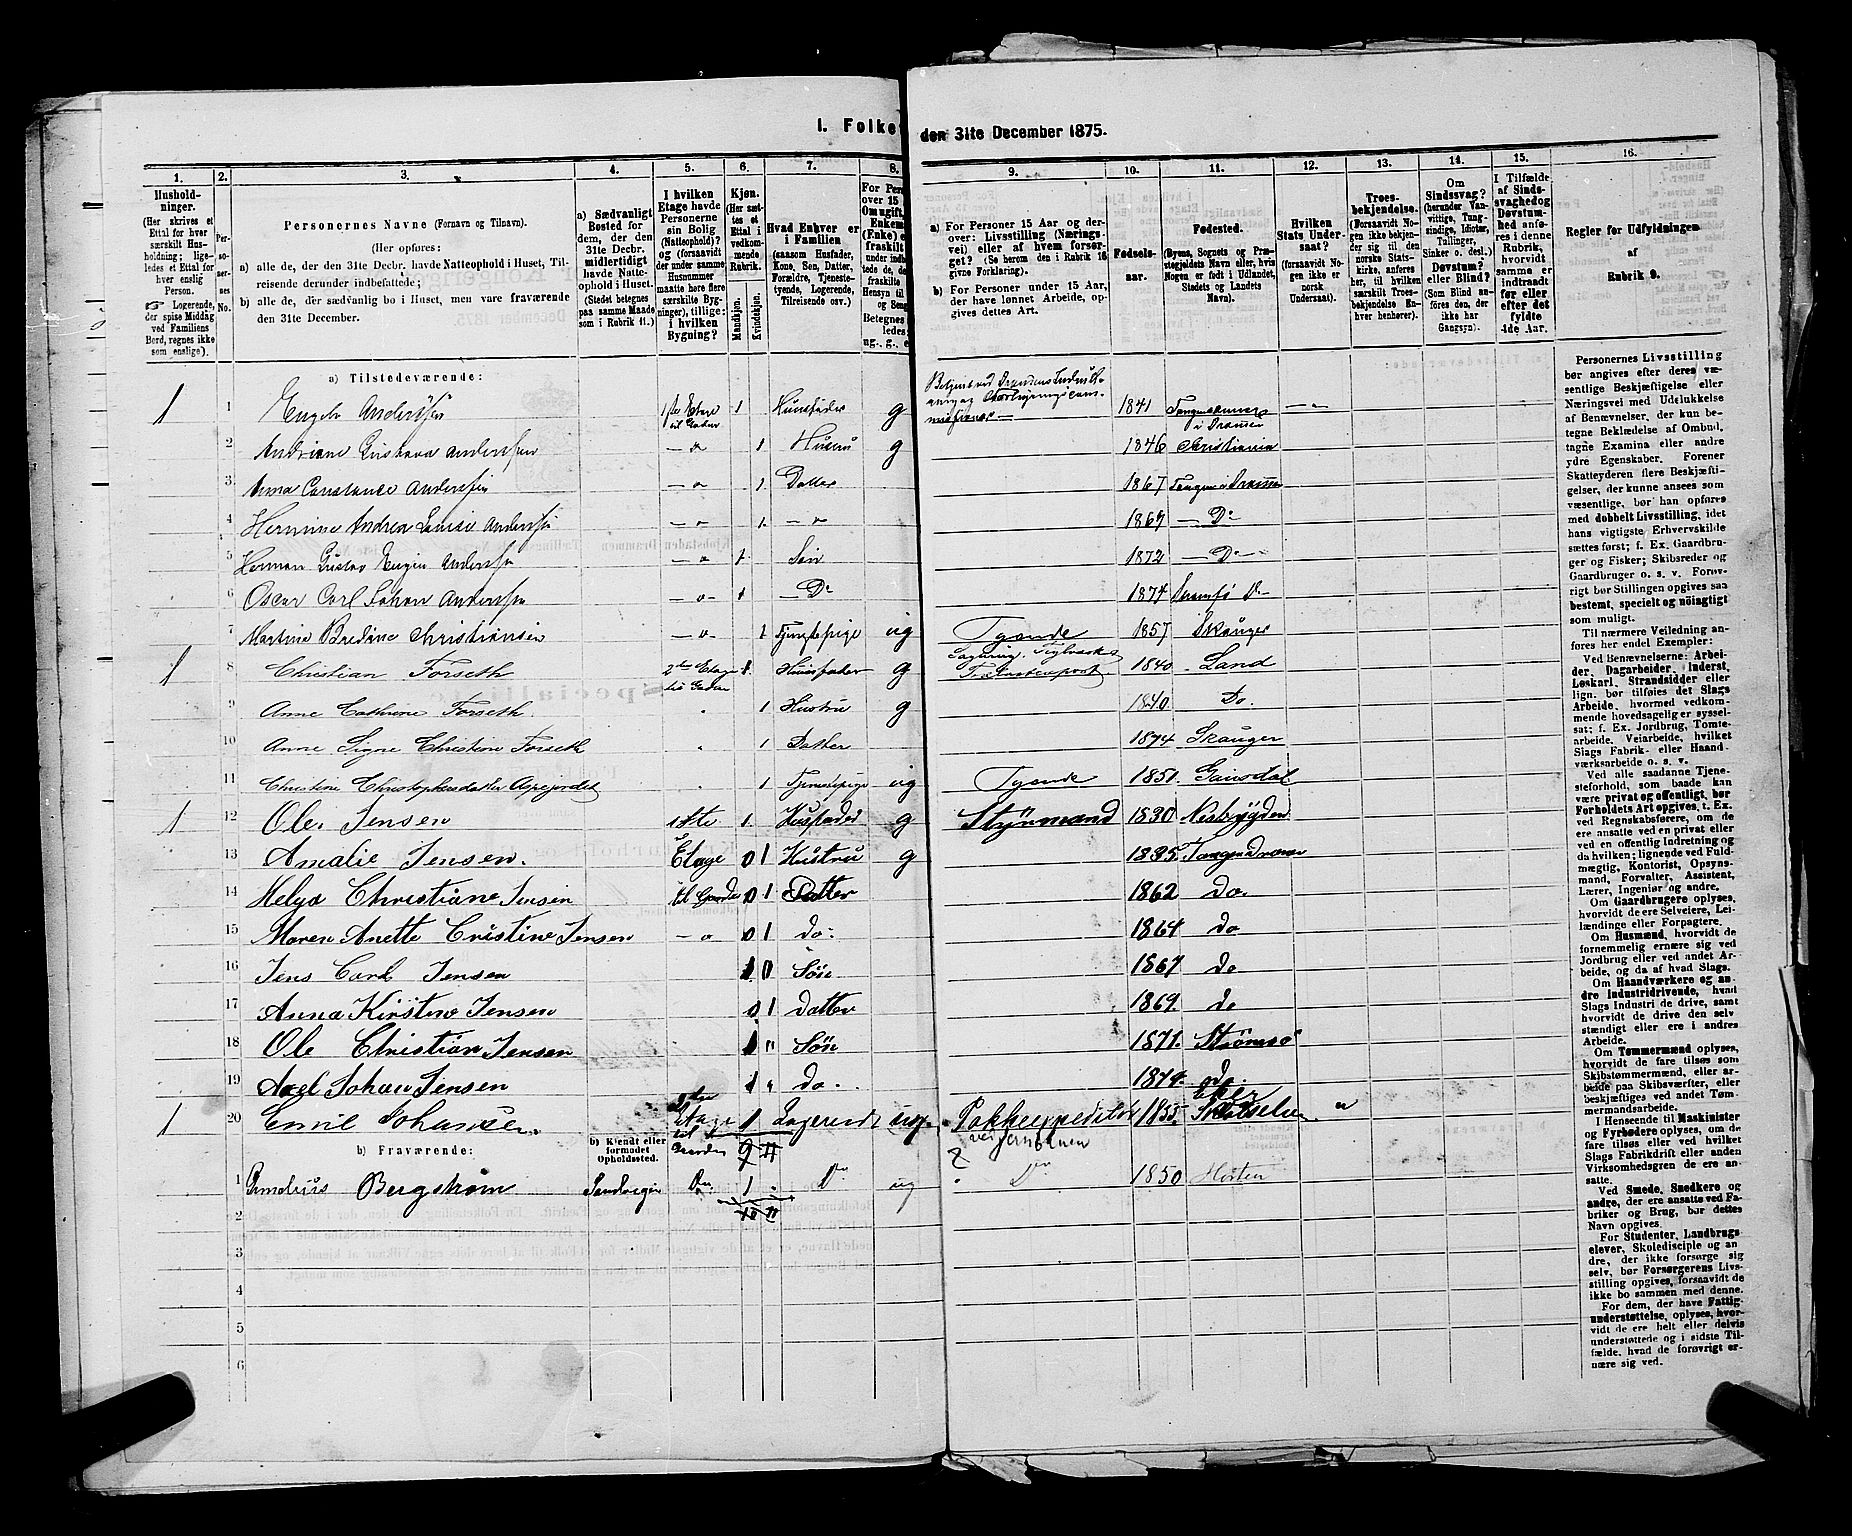 I. Folke
den 31te December 1875.
1. 2. 3. 4. 5. 6. 7. 8. 9. 10. 11. 12. 13. 14. 15. 16.
Hushold-
ninger.
(Her skrives et
Ettal for hver
særskilt Hus-
holdning; lige-
ledes et Ettal for
hver enslig
Person.
Logerende,
der spise Middag
ved Familiens
Bord, regnes ikke
som enslige).
Per-
so-
ner-
nes
No.
Personernes Navne (Fornavn og Tilnavn).
(Her opføres:
a) alle de, der den 31te Decbr. havde Natteophold i Huset, Til-
reisende derunder indbefattede;
b) alle de, der sædvanlig bo i Huset, men vare fraværende
den 31te December.
a) Sædvanligt
Bosted for
dem, der den
31te Decbr.
midlertidigt
havde Natte-
ophold i Huset.
(Stedet betegnes
paa samme Maade
som i Rubrik 11.)
I hvilken
Etage havde
Personerne
sin Bolig
(Natteophold)?
og (forsaavidt
der under samme
Husnummer
maatte høre flere
særskilte Byg-
ninger), tillige:
i hvilken
Bygning?
Kjøn.
(Her sæt-
tes et
Ettal i
vedkom-
mende
Rubrik.
Mandkjøn.
Kvindekjøn.
Hvad Enhver er
i Familien
(saasom Husfader,
Kone, Søn, Datter,
Tjeneste-
tyende, Logerende,
Tilreisende osv.)
For Per
over 15
Om ugift,
Enkem
(Enke) e
fraskilt
a) For Personer 15 Aar og der-
over: Livsstilling (Nærings-
vei) eller af hvem forsør-
get? (Se herom den i Rubrik 16
givne Forklaring).
b) For Personer under 15 Aar,
der have lønnet Arbeide, op-
gives dettes Art.
Fødsels-
aar.
Fødested.
(Byens, Sognets og Præ-
stegjeldets Navn eller, hvis
Nogen er født i Udlandet,
Stedets og Landets
Navn).
Hvilken
Stats Under-
saat?
(forsaavidt No-
gen ikke er
norsk
Undersaat).
Troes-
bekjendelse.
(Forsaavidt No-
gen ikke bekjen-
der sig til den
norske Stats-
kirke, anføres
her, til hvilken
særskilt Troes-
bekjendelse En-
hver henhører).
Om
Sindssvag?
(herunder Van-
vittige, Tung-
sindige, Idioter,
Tullinger,
Sinker o. desl.)
Døvstum?
eller Blind?
(Som Blind an-
føres den, der
ikke har
Gangsyn).
I Tilfælde
af Sinds-
svaghed og
Døvstum-
hed anfø-
res i denne
Rubrik,
hvorvidt
samme er
indtraadt
før eller
efter det
fyldte
4de Aar.
Regler for Udfyldningen
af
Rubrik 9.
a) Tilstedeværende:
1 1 Andersen 1ste Etage til Gaden 1 Husfader g 1841
2 Andriane Gustava Andersen 1 Hustru g 1846 Christiania
3 Anna Constance Andersen 1 Datter 1867 Tangen Drammen
4 Hermine Andrea Louise Andersen 1 1869 Do
5 Herman Gustav Andersen 1 Søn 1872 Do
6 Oscar Carl Johan Andersen 1 Do 1874 Strømsø Do
7 Martine Christiansen 1 Tjenestepige ug Tyende 1857 Skouger
1 8 Christian Forseth 2den Etage til Gaden 1 Husfader g 1840 Land
9 Anne Cathrine Forseth 1 Hustru g 1840 Do.
10 Anne Signe Christine Forseth 1 Datter 1874 Skouger
11 Christine Christophersdatter 1 Tjenestepige ug Tyende 1851 Gausdal
1 12 Ole Jensen 1ste 1 Husfader g Styrmand 1830
13 Amalie Jensen. Etage 0 1 Hustru g 1835
14 Helga Christiane Jensen til Gaden 0 1 Datter 1862 do.
15 Maren Anette Cristine Jensen 0 1 do. 1864 do
16 Jens Carl Jensen 1 0 Søn 1867 do
17 Anna Kirstine Jensen 0 1 datter 1869. do
18 Ole Christian Jensen 1 " Søn 1871. Strømsø
19 Axel Johan Jensen 1 " do. 1874. do.
1 20 Emil Johansen. Etage til Gaarden 1 Logerende ug. Pakkexpeditør ved Jernbanen 1855
b) Fraværende:
b) Kjendt eller
formodet
Opholdssted.
9 11
1 Bergstrøm 1 Do ug Do 1850 Horten
10 11
2
3
4
5
6
Personernes Livsstilling
bør angives efter deres væ-
sentlige Beskjæftigelse eller
Næringsvei med Udelukkelse
af Benævnelser, der kun be-
tegne Beklædelse af Ombud,
tagne Examina eller andre
ydre Egenskaber. Forener
Skatteyderen flere Beskjæfti-
gelser, der kunne ansees som
væsentlige, bør han opføres
med dobbelt Livsstilling, idet
hans vigtigste Erhvervskilde
sættes først; f. Ex. Gaardbru-
ger og Fisker; Skibsreder og
Gaardbruger o. s. v. Forøv-
rigt bør Stillingen opgives saa
bestemt, specielt og nøiagtigt
som muligt.
Til nærmere Veiledning an-
føres her endel Exempler:
Ved Benævnelserne: Arbei-
der, Dagarbeider, Inderst,
Løskarl, Strandsidder eller
lign. bør tilføies det Slags
Arbeide, hvormed vedkom-
mende hovedsagelig er syssel-
sat; f. Ex. Jordbrug, Tomte-
arbeide, Veiarbeide, hvilket
Slags Fabrik- eller Haand-
værksarbeide o. s. v.
Ved alle saadanne Tjene-
steforhold, som baade kan
være privat og offentligt, bør
Forholdets Art opgives, t. Ex.
ved Regnskabsførere, om de
ere ansatte ved en privat eller
en offentlig Indretning og
da hvilken; lignende ved Fuld-
mægtig, Kontorist, Opsyns-
mand, Forvalter, Assistent,
Lærer, Ingeniør og andre.
Om Gaardbrugere oplyses,
hvorvidt de ere Selveiere, Lei-
lændinge eller Forpagtere.
Om Husmænd, hvorvidt de
fornemmelig ernære sig ved
Jordbrug eller ved andet Ar-
beide, og da af hvad Slags.
Om Haandværkere og an-
dre Industridrivende, hvad
Slags Industri de drive, samt
hvorvidt de drive den selv-
stændigt eller ere i andres
Arbeide.
Om Tømmermænd oplyses,
hvorvidt de fare tilsøs som
Skibstømmermænd, eller ar-
beide paa Skibsværfter, eller
beskjæftiges ved andet Tøm-
mermandsarbeide.
I Henseende til Maskinister
og Fyrbødere oplyses, om de
fare tilsøs eller ved hvilket
Slags Fabrikdrift eller anden
Virksomhedsgren de ere an-
satte.
Ved Smede, Snedkere og
andre, der ere ansatte ved Fa-
briker og Brug, bør dettes
Navn opgives.
For Studenter, Landbrugs-
elever, Skoledisciple og an-
dre, der ikke forsørge sig
selv, bør Forsørgerens Livs-
stilling opgives, forsaavidt de
ikke bo sammen med denne.
For dem, der have Fattig-
understøttelse, oplyses, hvor-
vidt de ere helt eller delvis
understøttede og i sidste Til-
fælde, hvad de forøvrigt er-
nære sig ved.